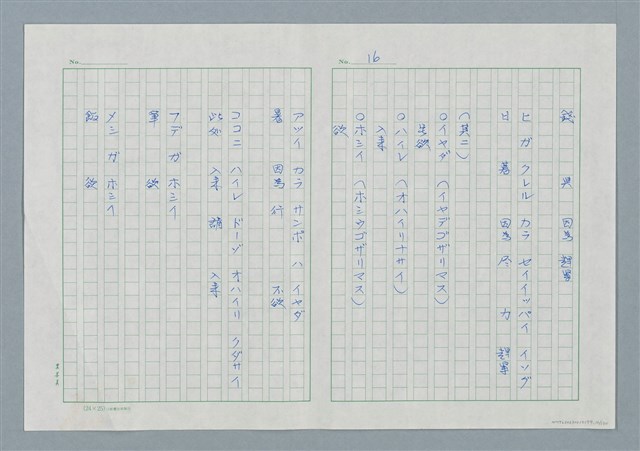 No. 16
ヒ ガ クレル カラ セイイッパイ イソグ
日 暮 因為 尽 力
(其二)
○イヤダ (イヤデゴザリマス)
○ハイレ (オハイリナサイ)
入来
○ホシイ (ホシウゴザリマス)
欲
No.
アツイ カラ サンポ ハ イヤダ
暑 因為 行 不欲
ココニ ハイレ ドーゾ オハイリ クダサイ
此処 入来 請 入来
フデ ガ ホシイ
筆 欲
メシ ガ ホシイ
飯 欲